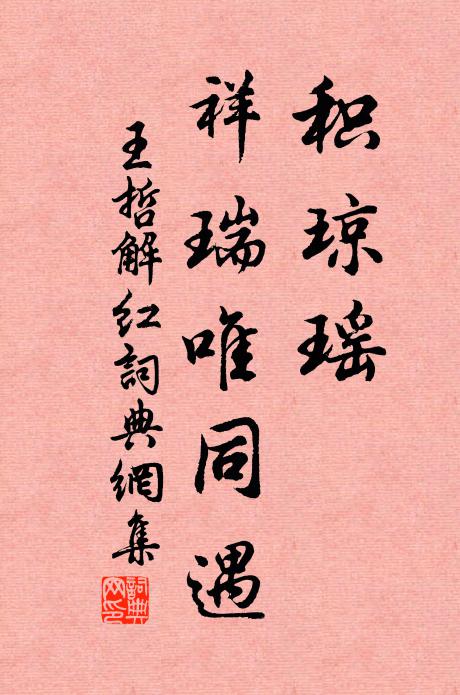 积琼瑶
祥瑞唯同遇
王哲解红詞典網集
詞典网印